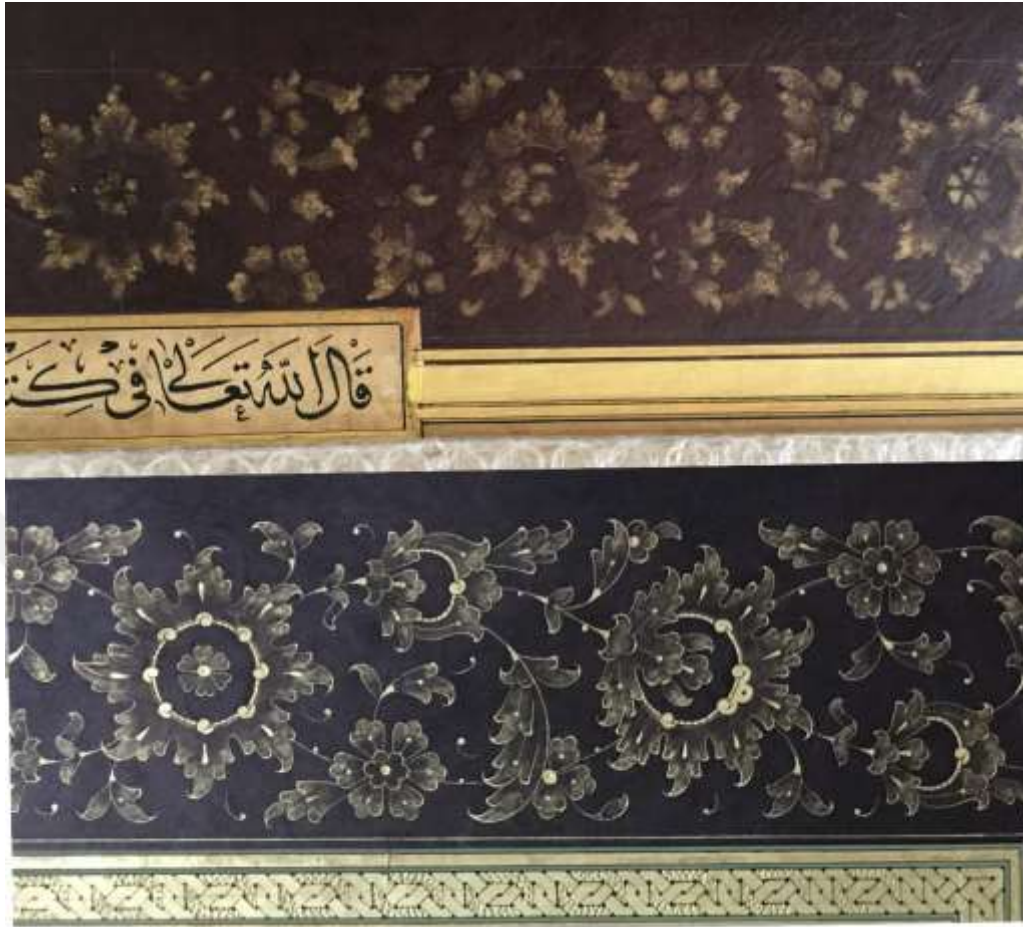 قَالَ اللّٰهُ تَعَالٰى فٰى